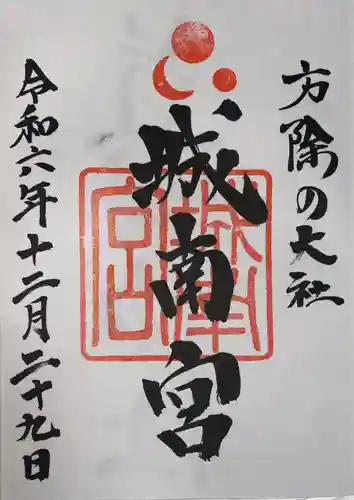 方除の大社
城南宮
令和六年十二月二十九日
城南宮